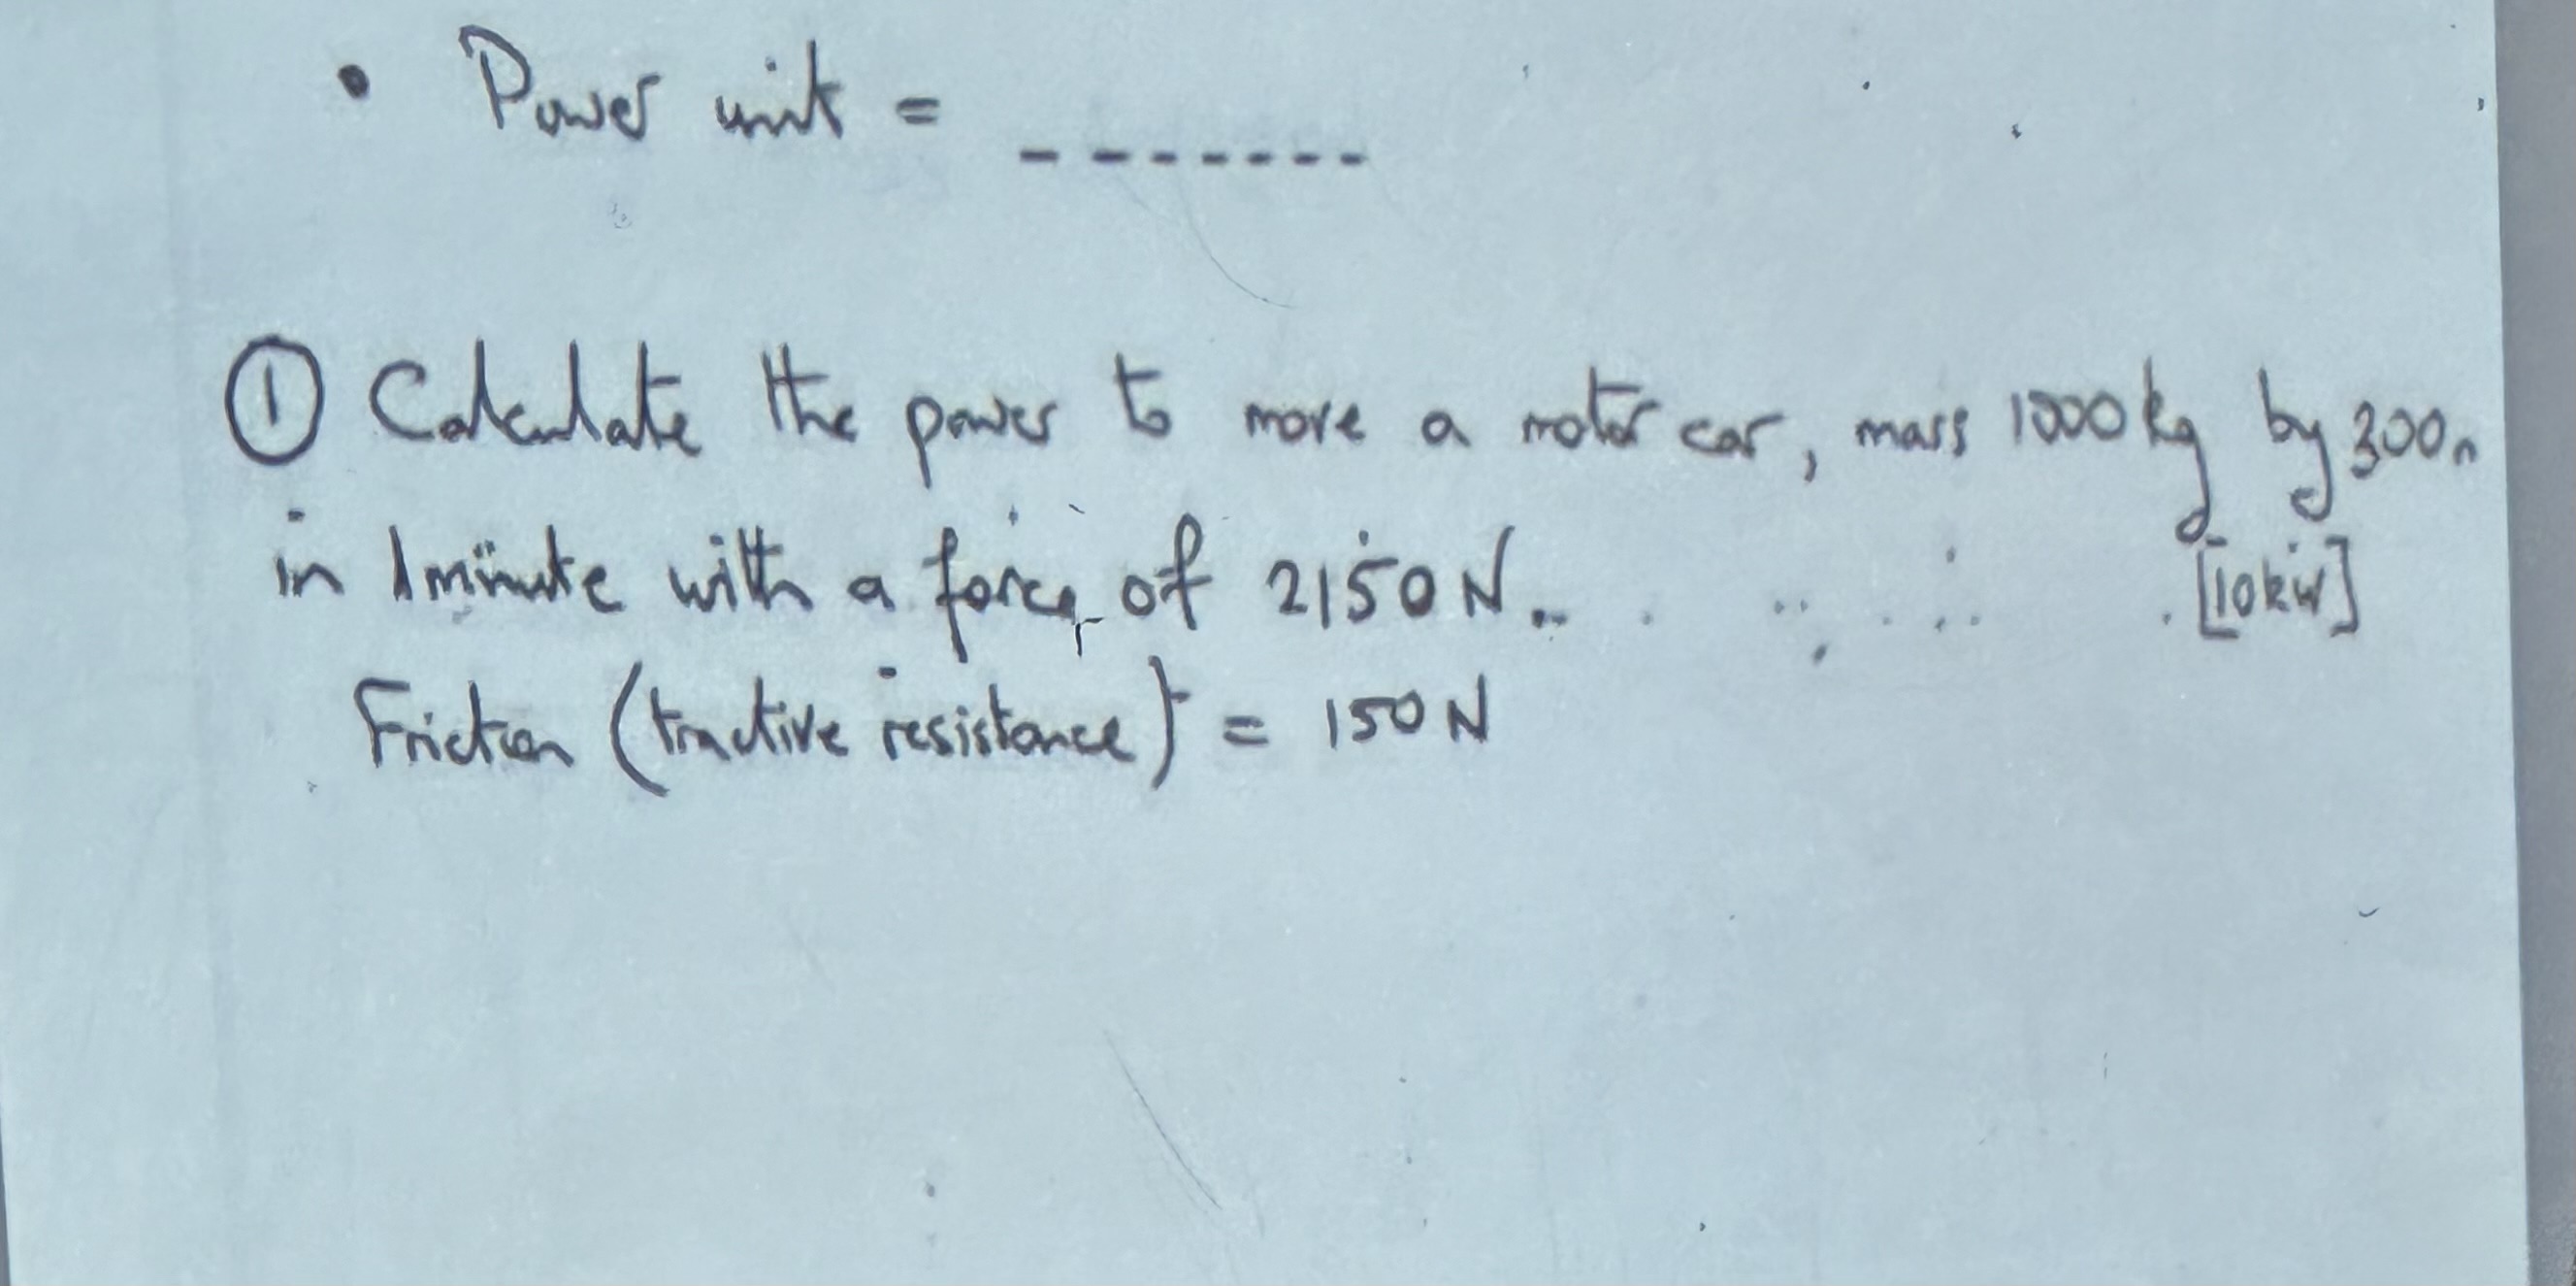 • Power unit = -------
① Calculate the power to move a motor car, mass 1000kg by 300m
in 1 minute with a force of 2150N. [10kW]
Friction (tractive resistance) = 150N